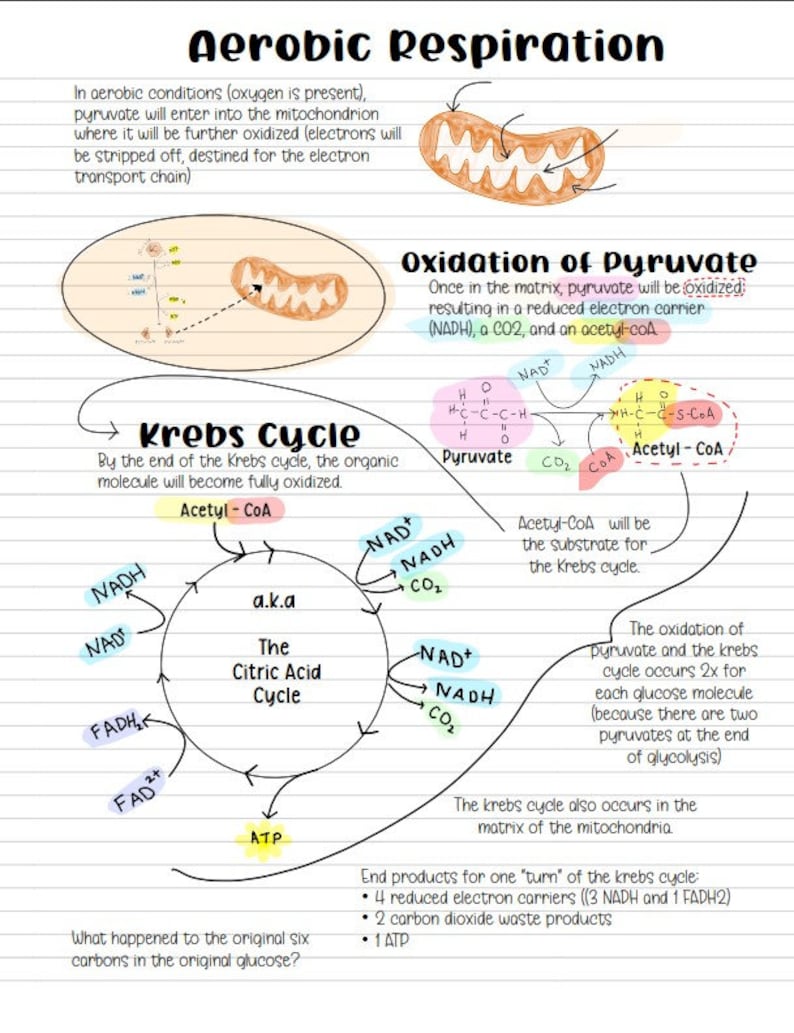 Aerobic Respiration
In aerobic conditions (oxygen is present),
pyruvate will enter into the mitochondrion
where it will be further oxidized (electrons will
be stripped off, destined for the electron
transport chain)
Oxidation of Pyruvate
Once in the matrix, pyruvate will be oxidized
resulting in a reduced electron carrier
(NADH), a CO2, and an acetyl-coA
NAD+
NADH
H O
H-C-C-C-H
H O
Pyruvate
CO2
CoA
H O
H-C-C-S-CoA
H
Acetyl - CoA
Krebs Cycle
By the end of the Krebs cycle, the organic
molecule will become fully oxidized.
Acetyl - CoA
Acetyl-CoA will be
the substrate for
the Krebs cycle.
NAD+
NADH
CO2
NADH
NAD+
a.k.a
The
Citric Acid
Cycle
NAD+
NADH
CO2
FADH2
FAD2+
ATP
The oxidation of
pyruvate and the krebs
cycle occurs 2x for
each glucose molecule
(because there are two
pyruvates at the end
of glycolysis)
The krebs cycle also occurs in the
matrix of the mitochondria.
End products for one "turn" of the krebs cycle:
• 4 reduced electron carriers ((3 NADH and 1 FADH2)
• 2 carbon dioxide waste products
• 1 ATP
What happened to the original six
carbons in the original glucose?